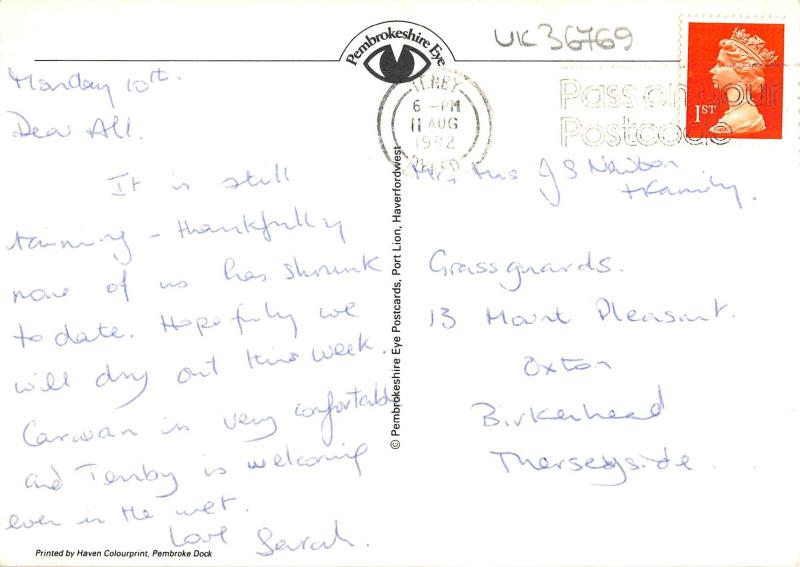 Pembrokeshire Eye
UK36769
TENBY
6 - PM
11 AUG
1992
DYFED
Pass on your
Postcode
1ST
Monday 10th.
Dear All.
It is still
raining - thankfully
none of us has shrunk
to date. Hopefully we
will dry out this week.
Caravan is very comfortable
and Tenby is welcoming
even in the wet.
Love Sarah.
Printed by Haven Colourprint, Pembroke Dock
© Pembrokeshire Eye Postcards, Port Lion, Haverfordwest
Mr, Mrs J S Newton
+ Family.
Grassguards.
13 Mount Pleasant.
Oxton
Birkenhead
Merseyside.